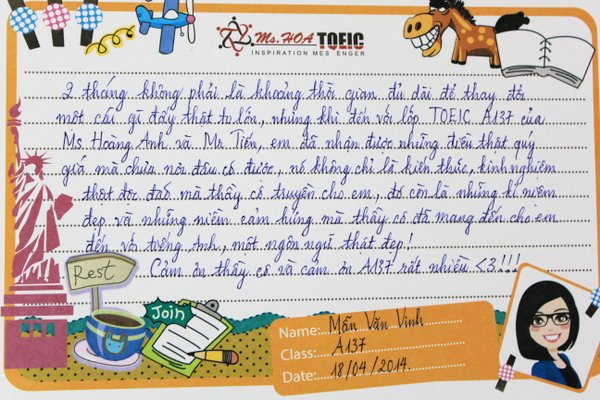 Ms.HOA TOEIC
INSPIRATION MES ENGER
2 tháng không phải là khoảng thời gian đủ dài để thay đổi
một cái gì đấy thật to lớn, nhưng khi đến với lớp TOEIC A137 của
Ms Hoàng Anh và Mr Tiến, em đã nhận được những điều thật quý
giá mà chưa nơi đâu có được, nó không chỉ là kiến thức, kinh nghiệm
thật độc đáo mà thầy cô truyền cho em, đó còn là những kỉ niệm
đẹp và những niềm cảm hứng mà thầy cô đã mang đến cho em
đến với tiếng Anh, một ngôn ngữ thật đẹp!
Cảm ơn thầy cô và cảm ơn A137 rất nhiều <3!!!
Rest
Join
Name: Mẫn Văn Vinh
Class: A137
Date: 18/04/2014.